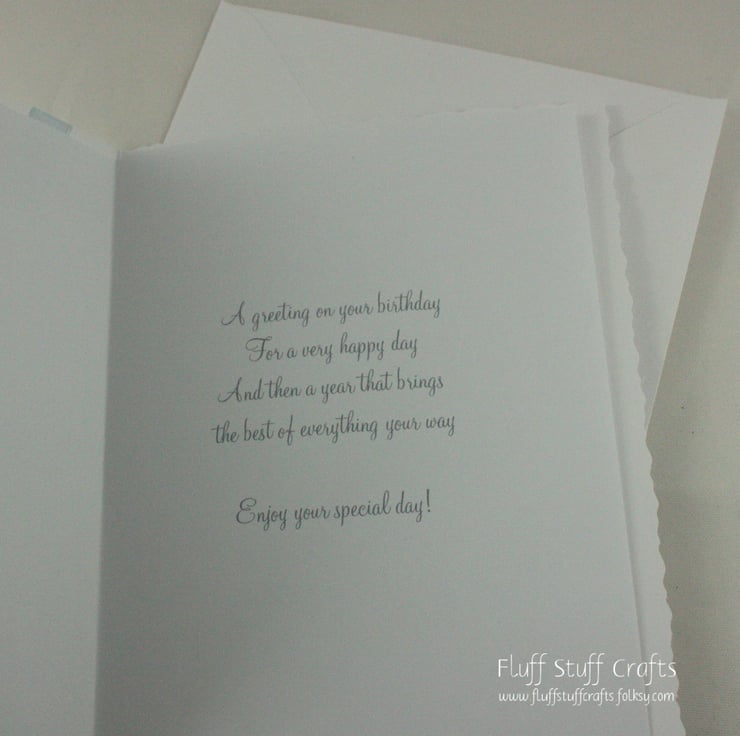 A greeting on your birthday
For a very happy day
And then a year that brings
the best of everything your way
Enjoy your special day!
Fluff Stuff Crafts
www.fluffstuffcrafts.folksy.com